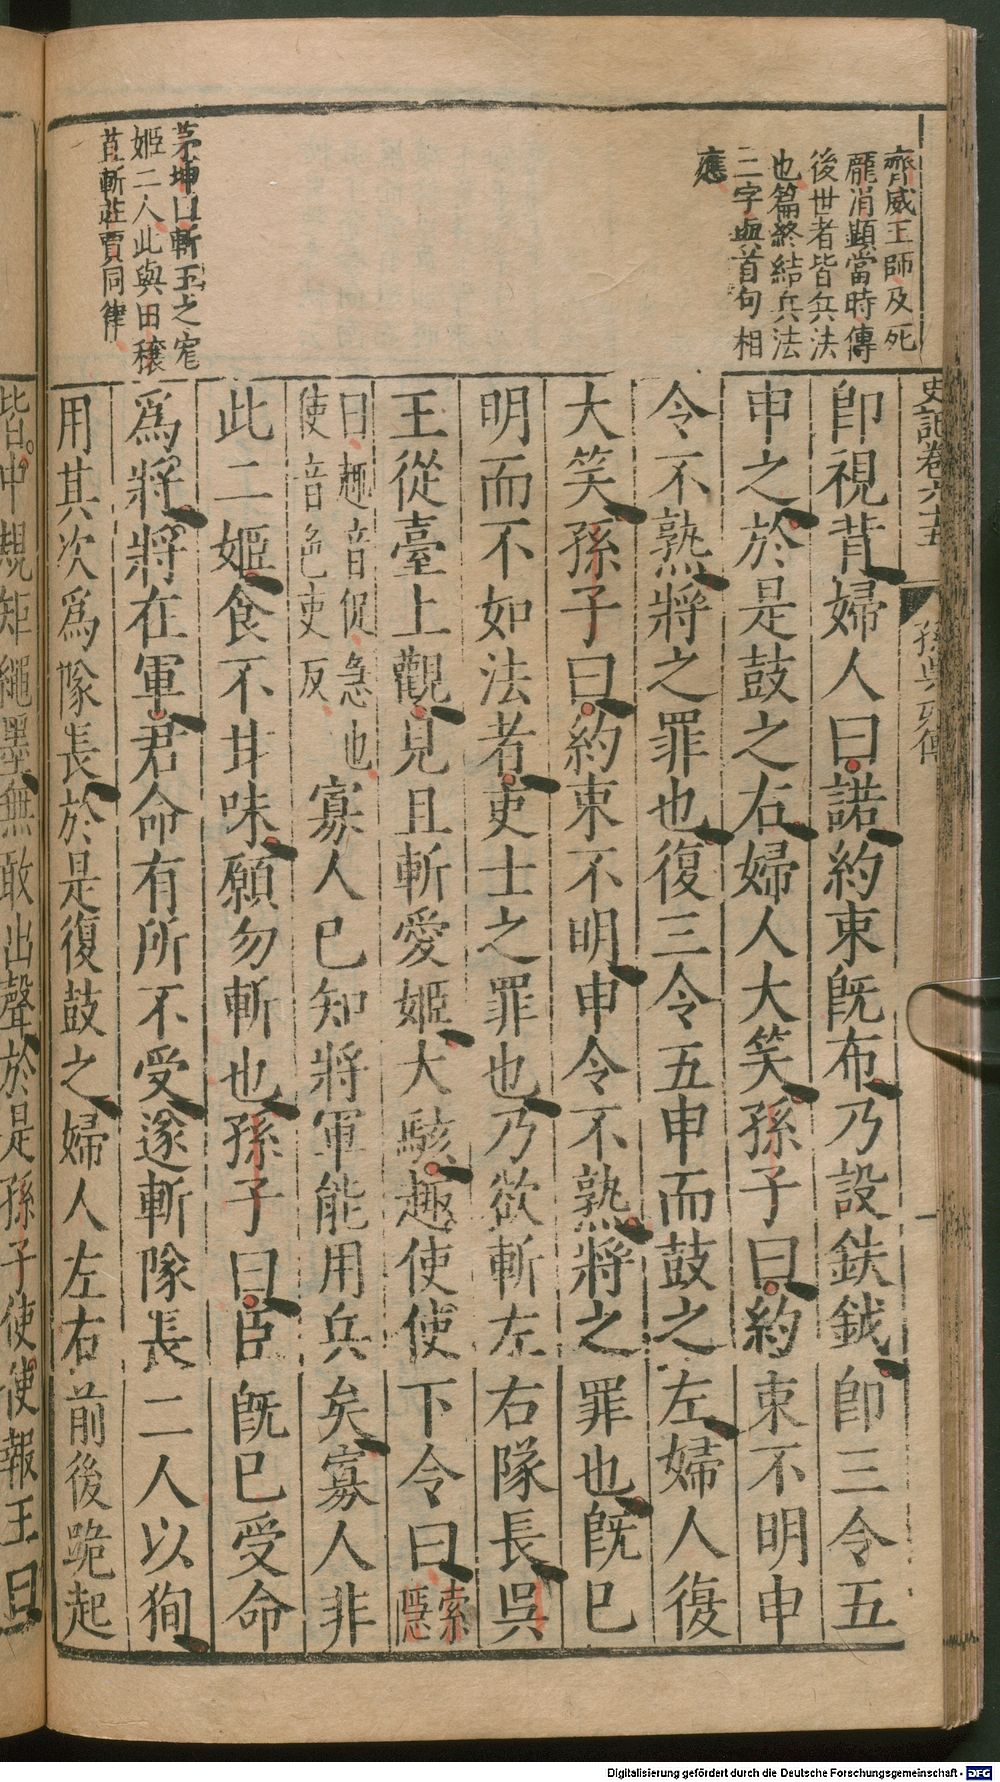 齊威王師及死
龐涓顯當時傳
後世者皆兵法
也篇終結兵法
三字與首句相
應
茅坤曰斬王之寵
姬二人此與田穰
苴斬莊賈同律
史記卷六十五
孫吳列傳
卽視背婦人曰諾約束旣布乃設鈇鉞卽三令五
申之於是鼓之右婦人大笑孫子曰約束不明申
令不熟將之罪也復三令五申而鼓之左婦人復
大笑孫子曰約束不明申令不熟將之罪也旣已
明而不如法者吏士之罪也乃欲斬左右隊長吳
王從臺上觀見且斬愛姬大駭趣使使下令曰索隱
曰趣音促急也
使音色吏反
寡人已知將軍能用兵矣寡人非
此二姬食不甘味願勿斬也孫子曰臣旣已受命
爲將將在軍君命有所不受遂斬隊長二人以狥
用其次爲隊長於是復鼓之婦人左右前後跪起
皆中規矩繩墨無敢出聲於是孫子使使報王曰
Digitalisierung gefördert durch die Deutsche Forschungsgemeinschaft - DFG